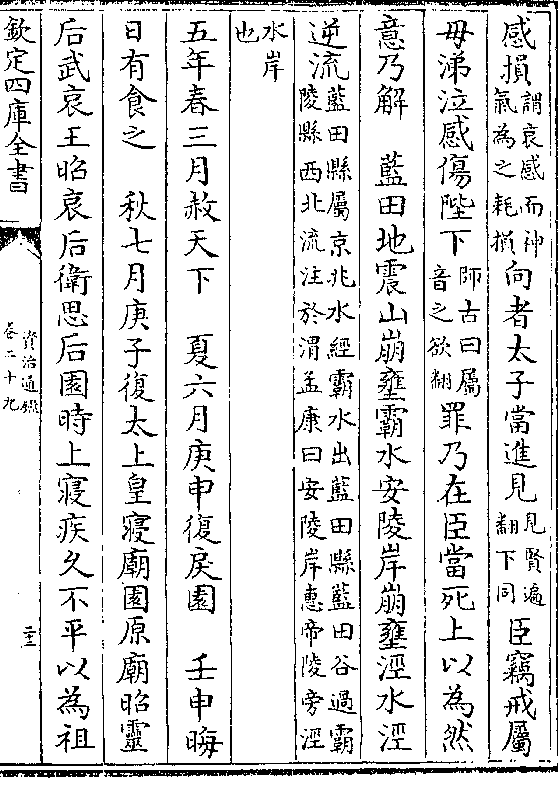 感損謂哀感而神氣為之耗損向者太子當進見見賢遍翻下同臣竊戒屬
毋涕泣感傷陛下師古曰屬音之欲翻罪乃在臣當死上以為然
意乃解　藍田地震山崩壅霸水安陵岸崩壅涇水涇
逆流藍田縣屬京兆水經霸水出藍田縣藍田谷過霸陵縣西北流注於渭孟康曰安陵岸惠帝陵旁涇
水岸也
五年春三月赦天下　夏六月庚申復戾園　壬申晦
日有食之　秋七月庚子復太上皇寢廟園原廟昭靈
后武哀王昭哀后衛思后園時上寢疾久不平以為祖
欽定四庫全書
資治通鑑
卷二十九
二十三